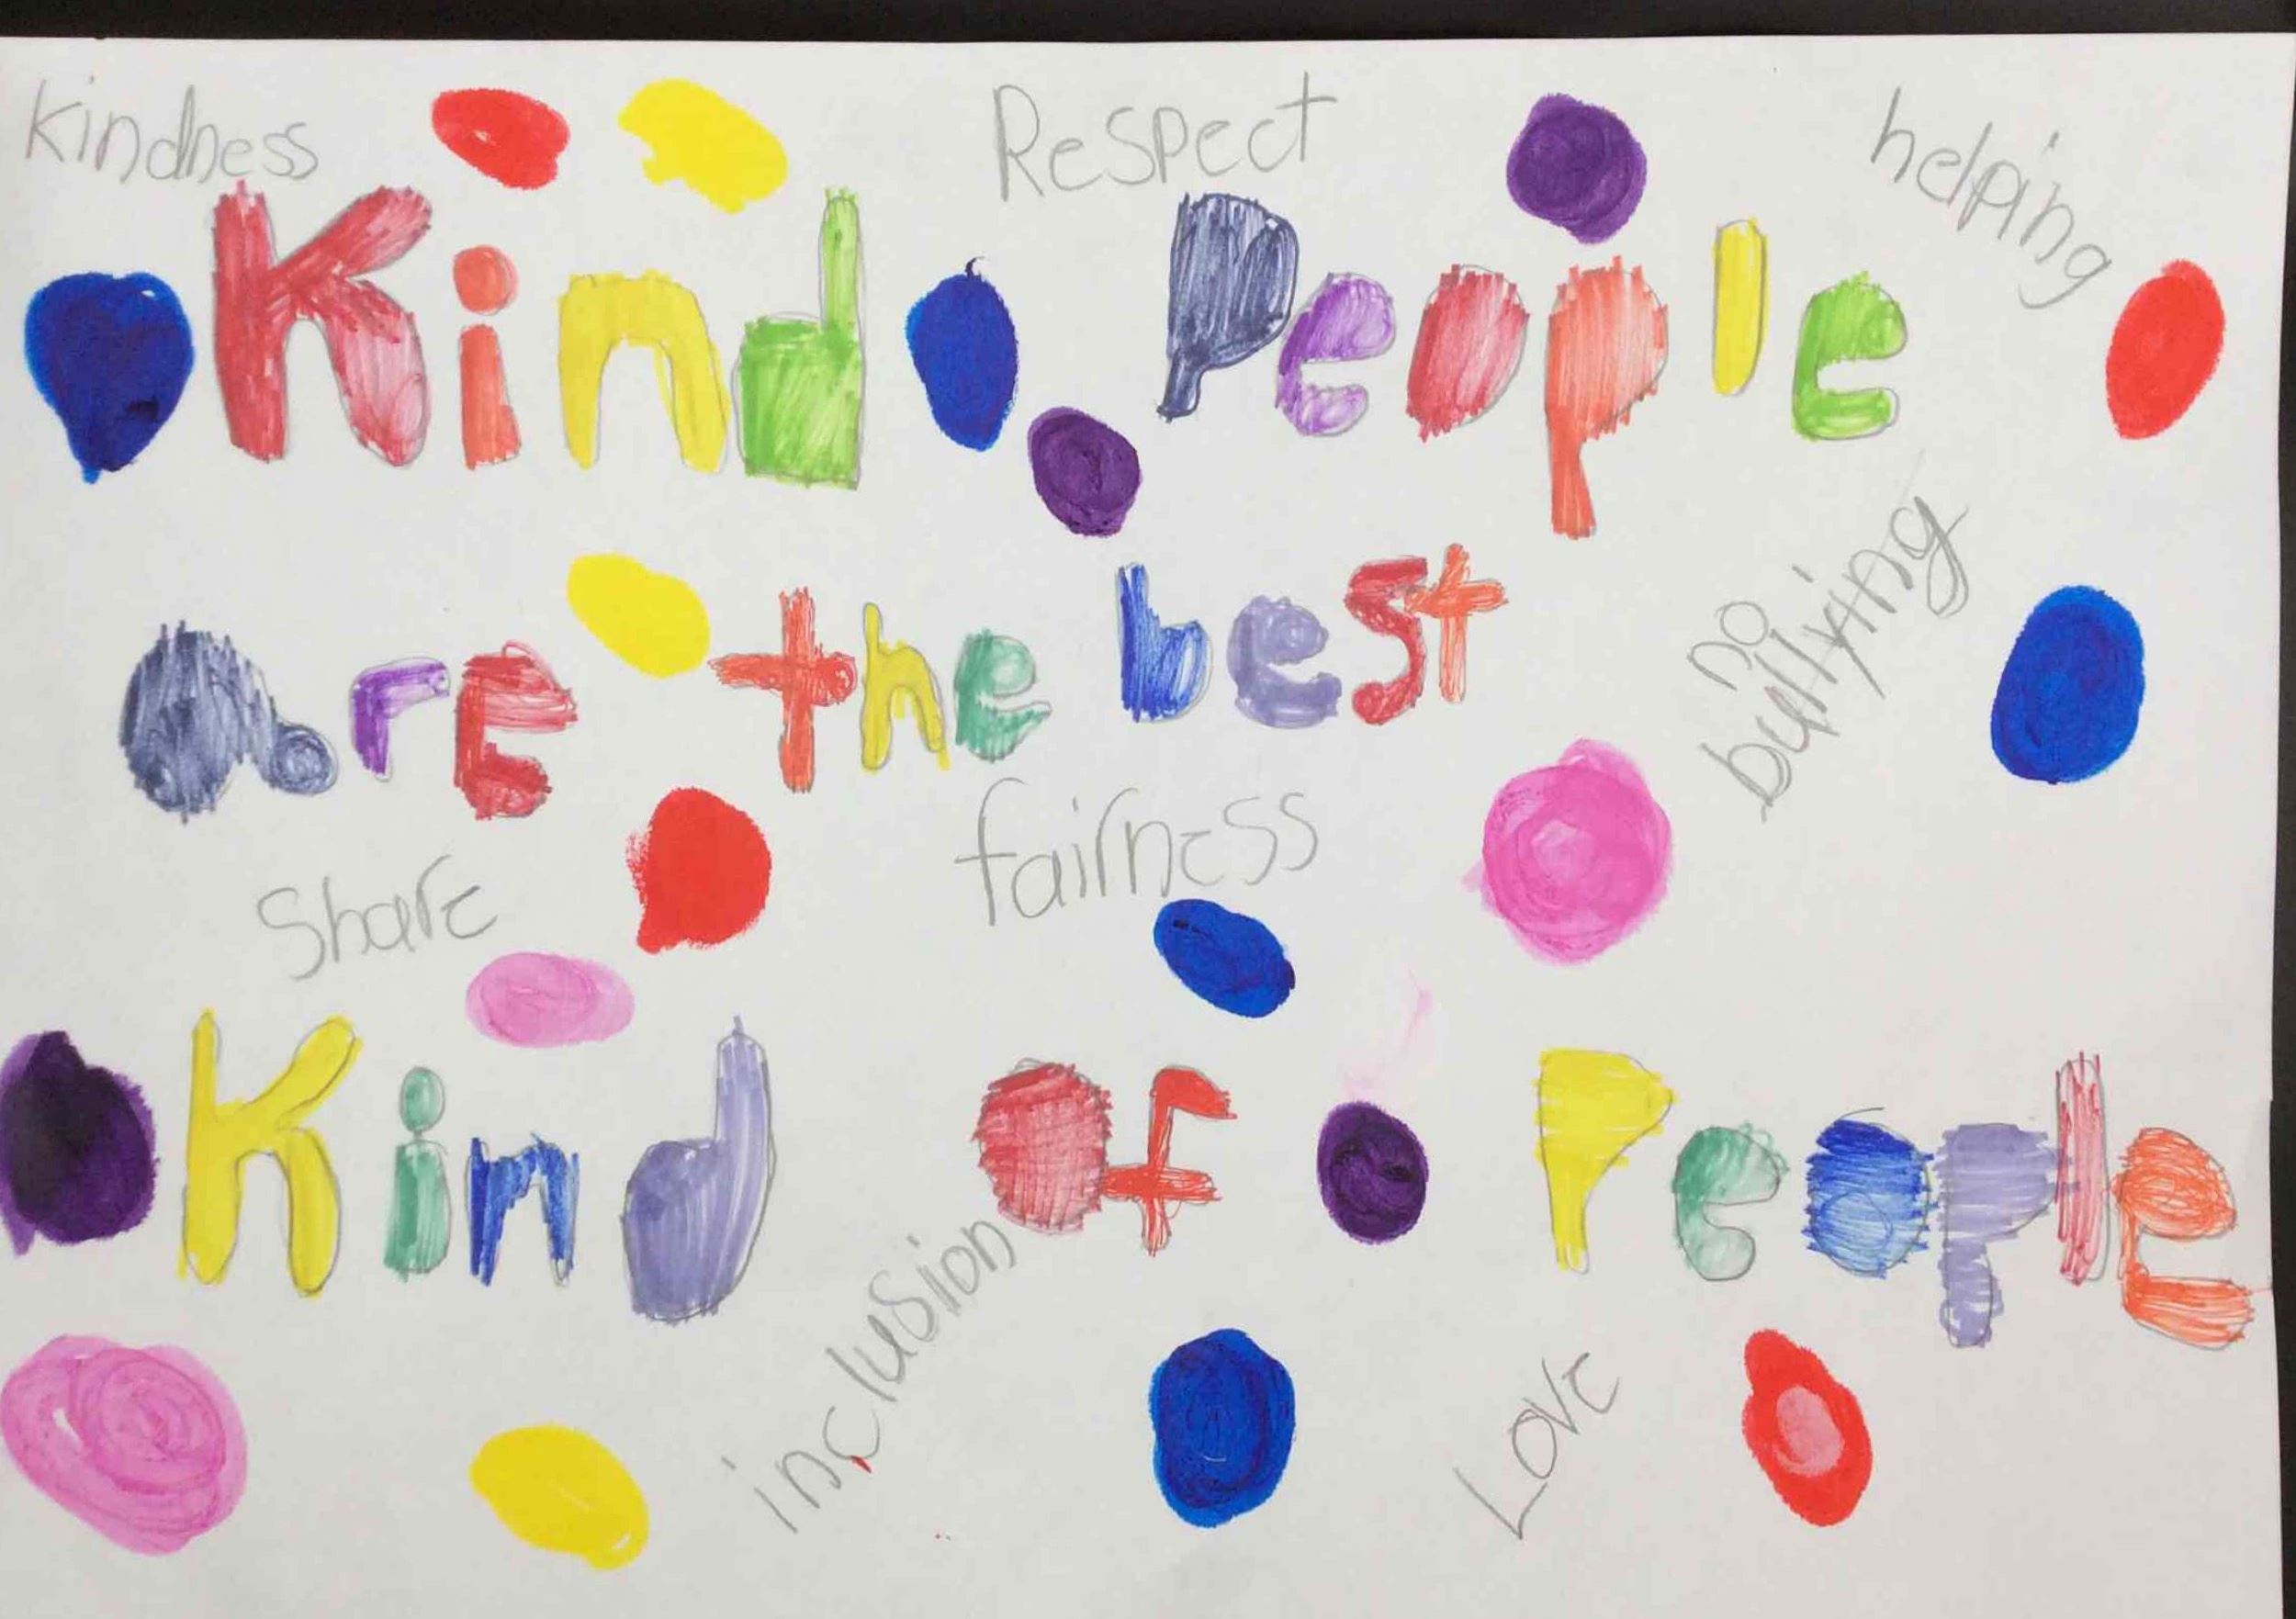 kindness
Respect
helping
Kind People
no
bullying
Are the best
fairness
Share
Kind Of People
inclusion
Love